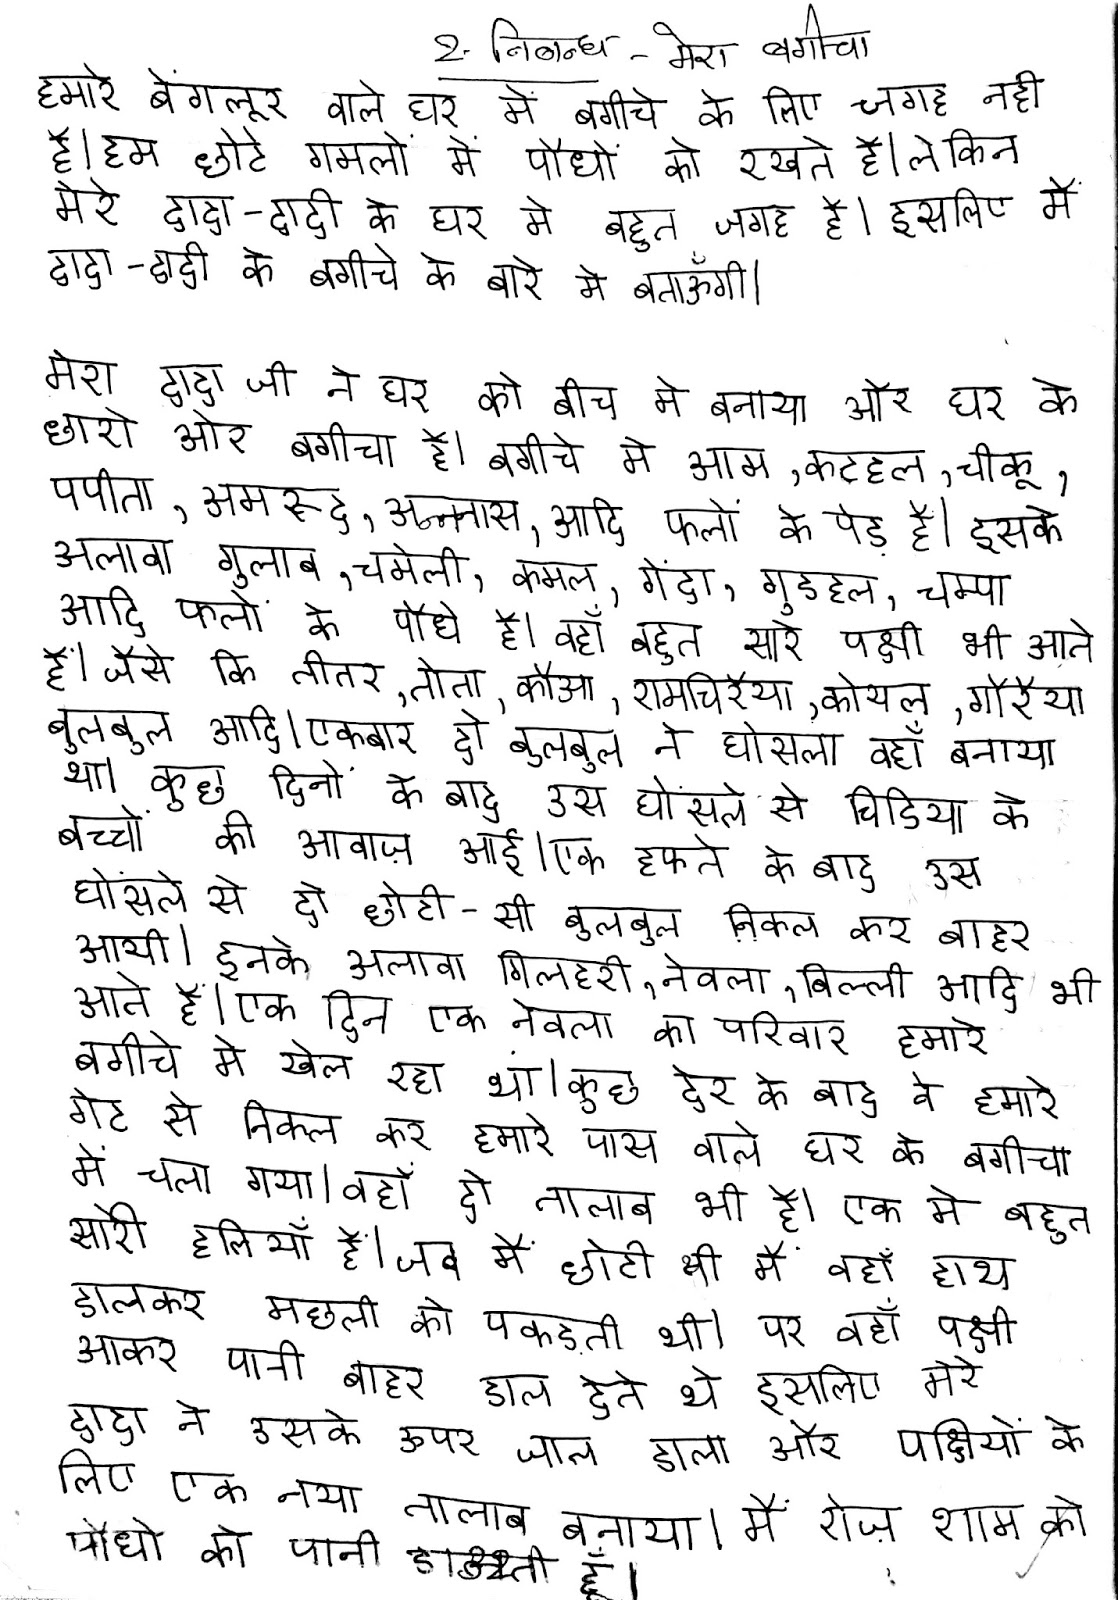 2. निबन्ध - मेरा बगीचा
हमारे बेंगलूर वाले घर में बगीचे के लिए जगह नही
है। हम छोटे गमलों में पौधों को रखते हैं। लेकिन
मेरे दादा-दादी के घर मे बहुत जगह है। इसलिए मैं
दादा-दादी के बगीचे के बारे मे बताऊँगी।
मेरा दादा जी ने घर को बीच मे बनाया और घर के
छारो ओर बगीचा है। बगीचे मे आम, कटहल, चीकू,
पपीता, अमरूद, अन्नास, आदि फलों के पेड़ है। इसके
अलावा गुलाब, चमेली, कमल, गेंदा, गुडहल, चम्पा
आदि फलों के पौधे है। वहाँ बहुत सारे पक्षी भी आते
हैं। जैसे कि तीतर, तोता, कौआ, रामचिरैया, कोयल, गौरैया
बुलबुल आदि। एकबार दो बुलबुल ने घोसला वहाँ बनाया
था। कुछ दिनों के बाद उस घोंसले से चिडिया के
बच्चों की आवाज़ आई। एक हफते के बाद उस
घोंसले से दो छोटी-सी बुलबुल निकल कर बाहर
आयी। इनके अलावा गिलहरी, नेवला, बिल्ली आदि भी
आते हैं। एक दिन एक नेवला का परिवार हमारे
बगीचे मे खेल रहा था। कुछ देर के बाद वे हमारे
गेट से निकल कर हमारे पास वाले घर के बगीचा
में चला गया। वहाँ दो तालाब भी है। एक मे बहुत
सारी हलियाँ हैं। जब मैं छोटी थी मैं वहाँ हाथ
डालकर मछली को पकड़ती थी। पर वहाँ पक्षी
आकर पानी बाहर डाल देते थे इसलिए मेरे
दादा ने उसके ऊपर जाल डाला और पक्षियों के
लिए एक नया तालाब बनाया। मैं रोज़ शाम को
पौधो को पानी हूँ।